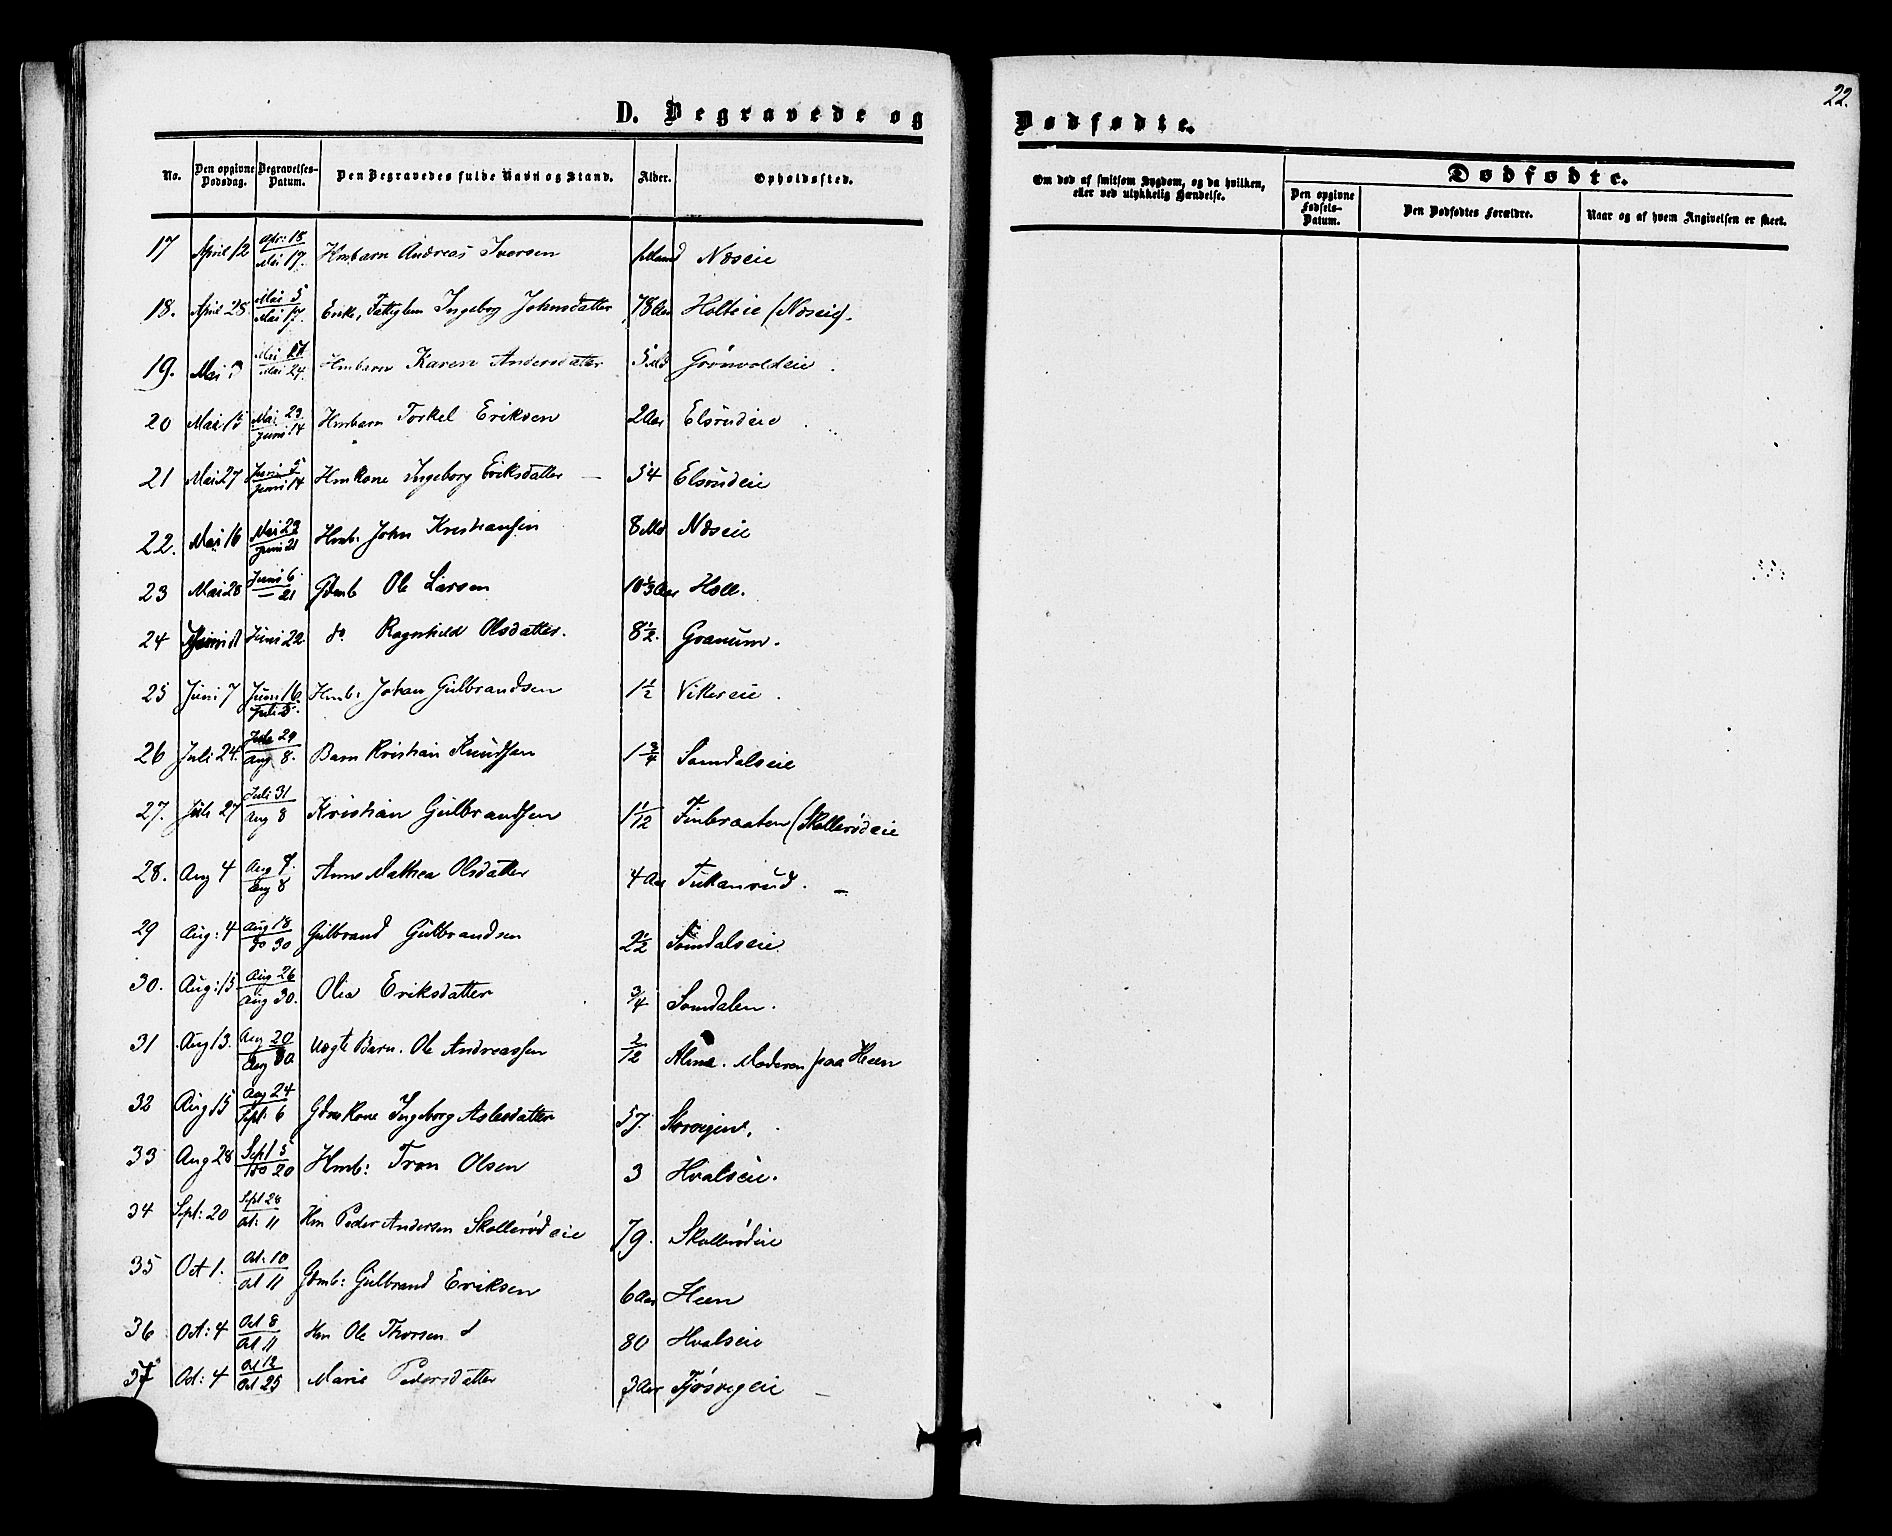 22.
D. Begravede og Dødfødte.
No. Den opgivne Dødsdag. Begravelses-Datum. Den Begravedes fulde Navn og Stand. Alder. Opholdssted.
Om død af smitsom Sygdom, og da hvilken, eller ved ulykkelig Hændelse.
Dødfødte.
Den opgivne Fødsels-Datum. Den Dødfødtes Forældre. Naar og af hvem Angivelsen er skeet.
17 April 12 Apr: 18 Mai 17. Hmbarn Andreas Iversen 1 Maaned Næseie
18. April 28 Mai 5 Mai 17. Enke, Fattiglem Ingeborg Johnsdatter 78 Aar Holteie (Næseie).
19. Mai Mai 24. Hmbarn Karen Andersdatter 5 Md Grönvoldeie.
20 Mai 15 Mai 23 Juni 14 Hmbarn Torkel Eriksen 2 Aar Elsrudeie
21 Mai 27 Juni 5 Juni 14 Hmkone Ingeborg Eriksdatter 54 Elsrudeie
22. Mai 16 Mai 23 Juni 21 Hmb: John Kristiansen 8 Md Næseie
23 Mai 28 Juni 6 — 21 Gdmb Ole Larsen 10 Aar Hval.
24 Juni 22 do. Ragnhild Olsdatter. 8 1/2. Granum.
25 Juni 7 Juni 16 Juli 5. Hmb: Johan Gulbrandsen 1 1/2 Vikereie.
26 Juli 24. Juli 29 Aug 8. Barn Kristian Knudsen 1 3/4 Somdalseie
27. Juli 27 Juli 31 Aug 8 Kristian Gulbrandsen 1 1/12 Finbraaten (Skollerødeie
28. Aug 4 Aug 8 Anne Mathea Olsdatter 4 Aar Tukanrud. —
29 Aug: 4 Aug 18 do 30 Gulbrand Gulbrandsen 2 1/2 Somdalseie
30. Aug: 15 Aug 26 Aug 30. Olia Eriksdatter 3/4 Somdalen.
31 Aug 13. Aug 20 Aug 30 Uægte Barn. Ole Andreassen 2/12 Alme. Moderen paa Heen
32 Aug 15 Aug 24 Sept: 6 Gdmkone Ingeborg Aslesdatter 57.
33 Aug 28 Sept 5 do 20 Hmb: Tron Olsen 3 Hvalseie.
34 Sept: 20 Sept 28 Oct: 11 Hm Peder Andersen Skollerødeie 79. Skollerødeie
35 Oct 1. Oct: 10 Oct 11 Gdmb: Gulbrand Eriksen 6 Aar Heen
36 Oct: 4 Oct 8 Oct 11 Hm Ole Thorsen 80 Hvalseie
37 Oct: 4 Oct 12 Oct 25 Marie Pedersdatter 3 Aar Tjøsvigeie —